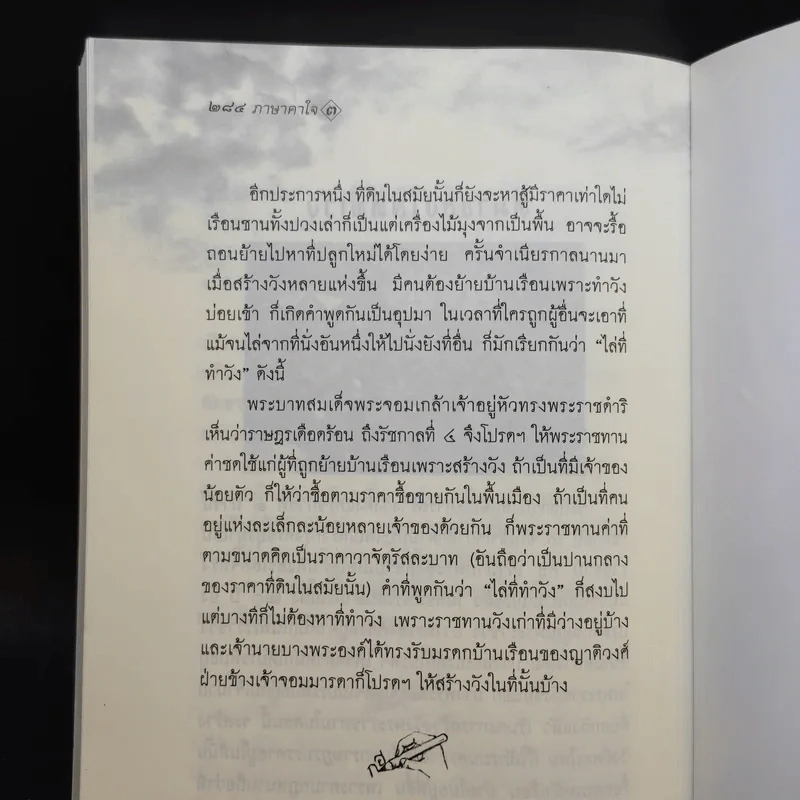 ๒๘๔ ภาษาคาใจ ๓
อีกประการหนึ่ง ที่ดินในสมัยนั้นก็ยังจะหาสู้มีราคาเท่าใดไม่
เรือนชานทั้งปวงเล่าก็เป็นแต่เครื่องไม้มุงจากเป็นพื้น อาจจะรื้อ
ถอนย้ายไปหาที่ปลูกใหม่ได้โดยง่าย ครั้นจำเนียรกาลนานมา
เมื่อสร้างวังหลายแห่งขึ้น มีคนต้องย้ายบ้านเรือนเพราะทำวัง
บ่อยเข้า ก็เกิดคำพูดกันเป็นอุปมา ในเวลาที่ใครถูกผู้อื่นจะเอาที่
แม้จนไล่จากที่นั่งอันหนึ่งให้ไปนั่งยังที่อื่น ก็มักเรียกกันว่า “ไล่ที่
ทำวัง” ดังนี้
พระบาทสมเด็จพระจอมเกล้าเจ้าอยู่หัวทรงพระราชดำริ
เห็นว่าราษฎรเดือดร้อน ถึงรัชกาลที่ ๔ จึงโปรดฯ ให้พระราชทาน
ค่าชดใช้แก่ผู้ที่ถูกย้ายบ้านเรือนเพราะสร้างวัง ถ้าเป็นที่มีเจ้าของ
น้อยตัว ก็ให้ว่าซื้อตามราคาซื้อขายกันในพื้นเมือง ถ้าเป็นที่คน
อยู่แห่งละเล็กละน้อยหลายเจ้าของด้วยกัน ก็พระราชทานค่าที่
ตามขนาดคิดเป็นราคาวาจัตุรัสละบาท (อันถือว่าเป็นปานกลาง
ของราคาที่ดินในสมัยนั้น) คำที่พูดกันว่า “ไล่ที่ทำวัง” ก็สงบไป
แต่บางทีก็ไม่ต้องหาที่ทำวัง เพราะราชทานวังเก่าที่มีว่างอยู่บ้าง
และเจ้านายบางพระองค์ได้ทรงรับมรดกบ้านเรือนของญาติวงศ์
ฝ่ายข้างเจ้าจอมมารดาก็โปรดฯ ให้สร้างวังในที่นั้นบ้าง